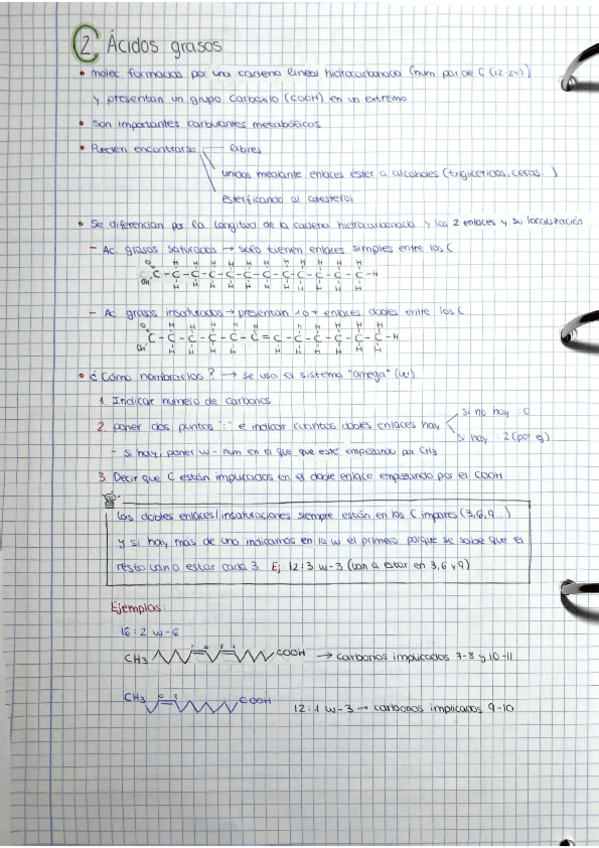 2. Ácidos grasos
• molec formadas por una cadena lineal hidrocarbonada (num par de C (12-24))
y presentan un grupo carboxilo (COOH) en un extremo
• Son importantes carburantes metabólicos
• Pueden encontrarse libres
unidos mediante enlaces éster a alcoholes (triglicéridos, ceras..)
esterificando al colesterol
• Se diferencian por la longitud de la cadena hidrocarbonada y los 2 enlaces y su localización
- Ac. grasos saturados → solo tienen enlaces simples entre los C
- Ac grasos insaturados → presentan 1 o + enlaces dobles entre los C
• ¿Cómo nombrarlos? → se usa el sistema "omega" (w)
1. Indicar numero de carbonos
2. poner dos puntos ":" e indicar cuantos dobles enlaces hay
si no hay :0
si hay :2 (por ej)
- si hay, poner w-num en el que que esté empezando por CH3
3. Decir que C están implicados en el doble enlace empezando por el COOH
Los dobles enlaces/insaturaciones siempre están en los C impares (3,6,9...)
y si hay más de uno indicamos en la w el primero porque se sabe que el
resto van a estar cada 3. Ej: 12:3 w-3 (van a estar en 3,6 y 9)
Ejemplos:
16:2 w-6
CH3 COOH → carbonos implicados 7-8 y 10-11
CH3 COOH 12:1 w-3 → carbonos implicados 9-10